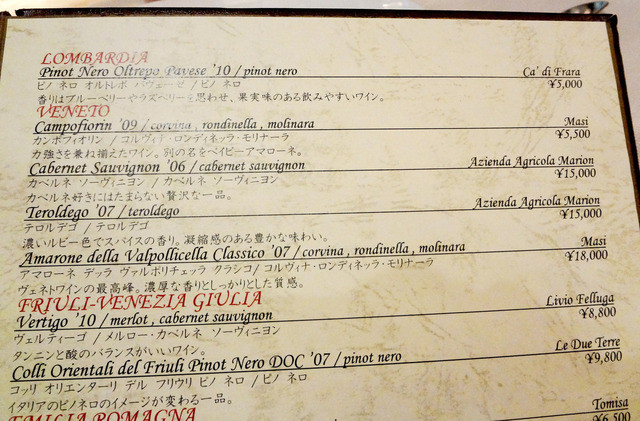 LOMBARDIA
Pinot Nero Oltrepo Pavese '10 / pinot nero Ca' di Frara
ピノ ネロ オルトレポ パヴェーゼ / ピノ ネロ ¥5,000
香りはブルーベリーやラズベリーを思わせ、果実味のある飲みやすいワイン。
VENETO
Campofiorin '09 / corvina , rondinella , molinara Masi
カンポフィオリン / コルヴィナ・ロンディネッラ・モリナーラ ¥5,500
力強さを兼ね揃えたワイン。別の名をベイビーアマローネ。
Cabernet Sauvignon '06 / cabernet sauvignon Azienda Agricola Marion
カベルネ ソーヴィニヨン / カベルネ ソーヴィニヨン ¥15,000
カベルネ好きにはたまらない贅沢な一品。
Teroldego '07 / teroldego Azienda Agricola Marion
テロルデゴ / テロルデゴ ¥15,000
濃いルビー色でスパイスの香り。凝縮感のある豊かな味わい。
Amarone della Valpollicella Classico '07 / corvina , rondinella , molinara Masi
アマローネ デッラ ヴァルポリチェッラ クラシコ / コルヴィナ・ロンディネッラ・モリナーラ ¥18,000
ヴェネトワインの最高峰。濃厚な香りとしっかりとした質感。
FRIULI-VENEZIA GIULIA
Vertigo '10 / merlot , cabernet sauvignon Livio Felluga
ヴェルティーゴ / メルロー・カベルネ ソーヴィニヨン ¥8,800
タンニンと酸のバランスがいいワイン。
Colli Orientali del Friuli Pinot Nero DOC '07 / pinot nero Le Due Terre
コッリ オリエンターリ デル フリウリ ピノ ネロ / ピノ ネロ ¥9,800
イタリアのピノネロのイメージが変わる一品。
EMILIA ROMAGNA
Tomisa
¥6,500